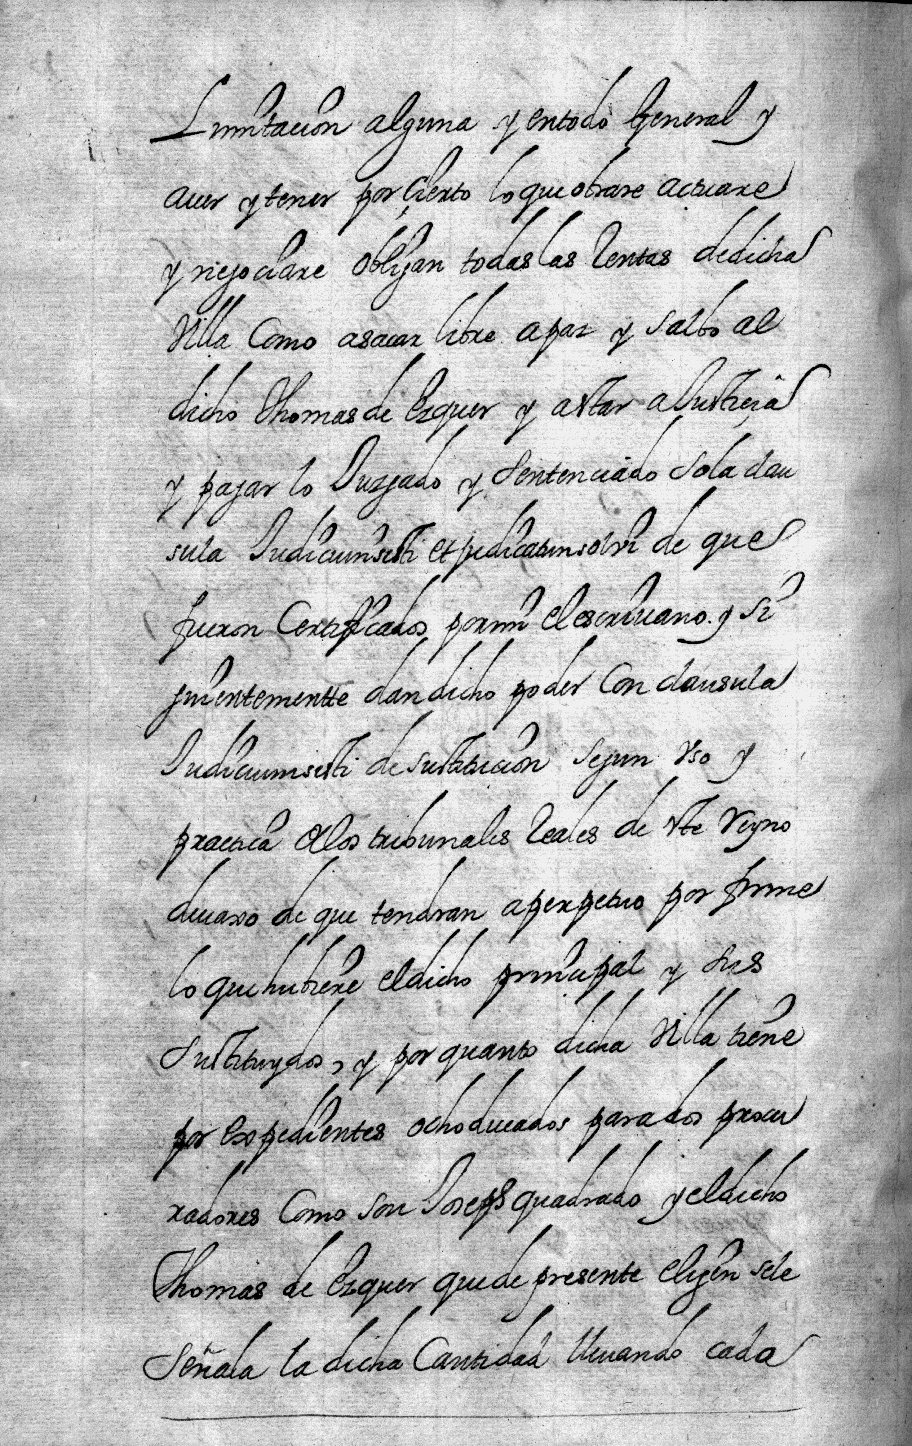 Limitacion alguna y entodo General y
aver y tener por çierto loque obrare actuare
y negociare obligan todas las Rentas dedicha
Villa Como asacar libre apaz y salbo al
dicho Thomas de Ezquer y astar a Justicia
y pagar lo Juzgado y sentenciado Sola clau
sula Judicium sisti et judicatum solvi de que
fueron Certificados por mi el escrivano y Si
guientementte dan dicho poder Con clausula
Judicium sisti de sustitucion segun Vso y
practica de los tribunales Reales de este Reyno
devaxo de que tendran aperpetuo por firme
lo que hubiere el dicho principal y sus
Sustituydos, y por quanto dicha Villa tiene
por expedientes ocho ducados para dos procu
radores Como son Joseph quadrado y el dicho
Thomas de Ezquer que de presente eligen sele
Señala la dicha Cantidad llevando cada